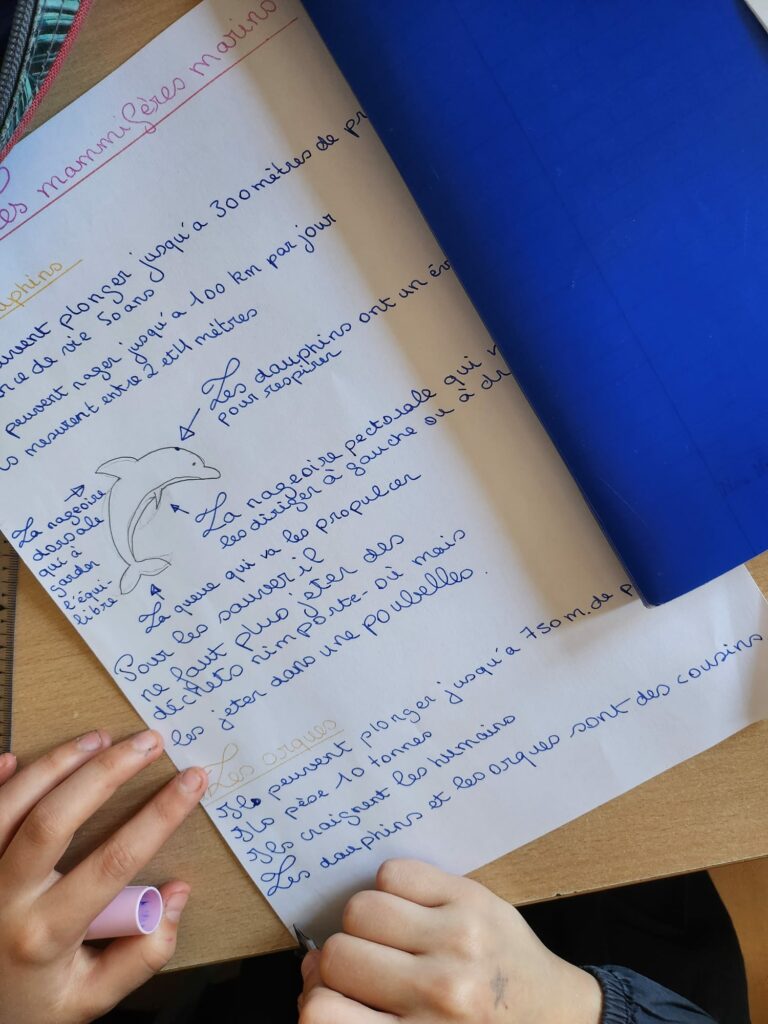 Les mammifères marins
dauphins
peuvent plonger jusqu'a 300 mètres de pr
de vie 50 ans
peuvent nager jusqu'a 100 km par jour
mesurent entre 2 et 4 mètres
Les dauphins ont un év
pour respirer
La nageoire pectorale qui v
les diriger à gauche ou à dr
La nageoire
dorsale
qui à
garder
l'équi-
libre
La queue qui va les propulcer
Pour les sauver il
ne faut plus jeter des
déchets n'importe-où mais
les jeter dans une poubelles.
Les orques
Ils peuvent plonger jusqu'a 750 m. de p
Ils pèse 10 tonnes
Ils craignent les humains
Les dauphins et les orques sont des cousins